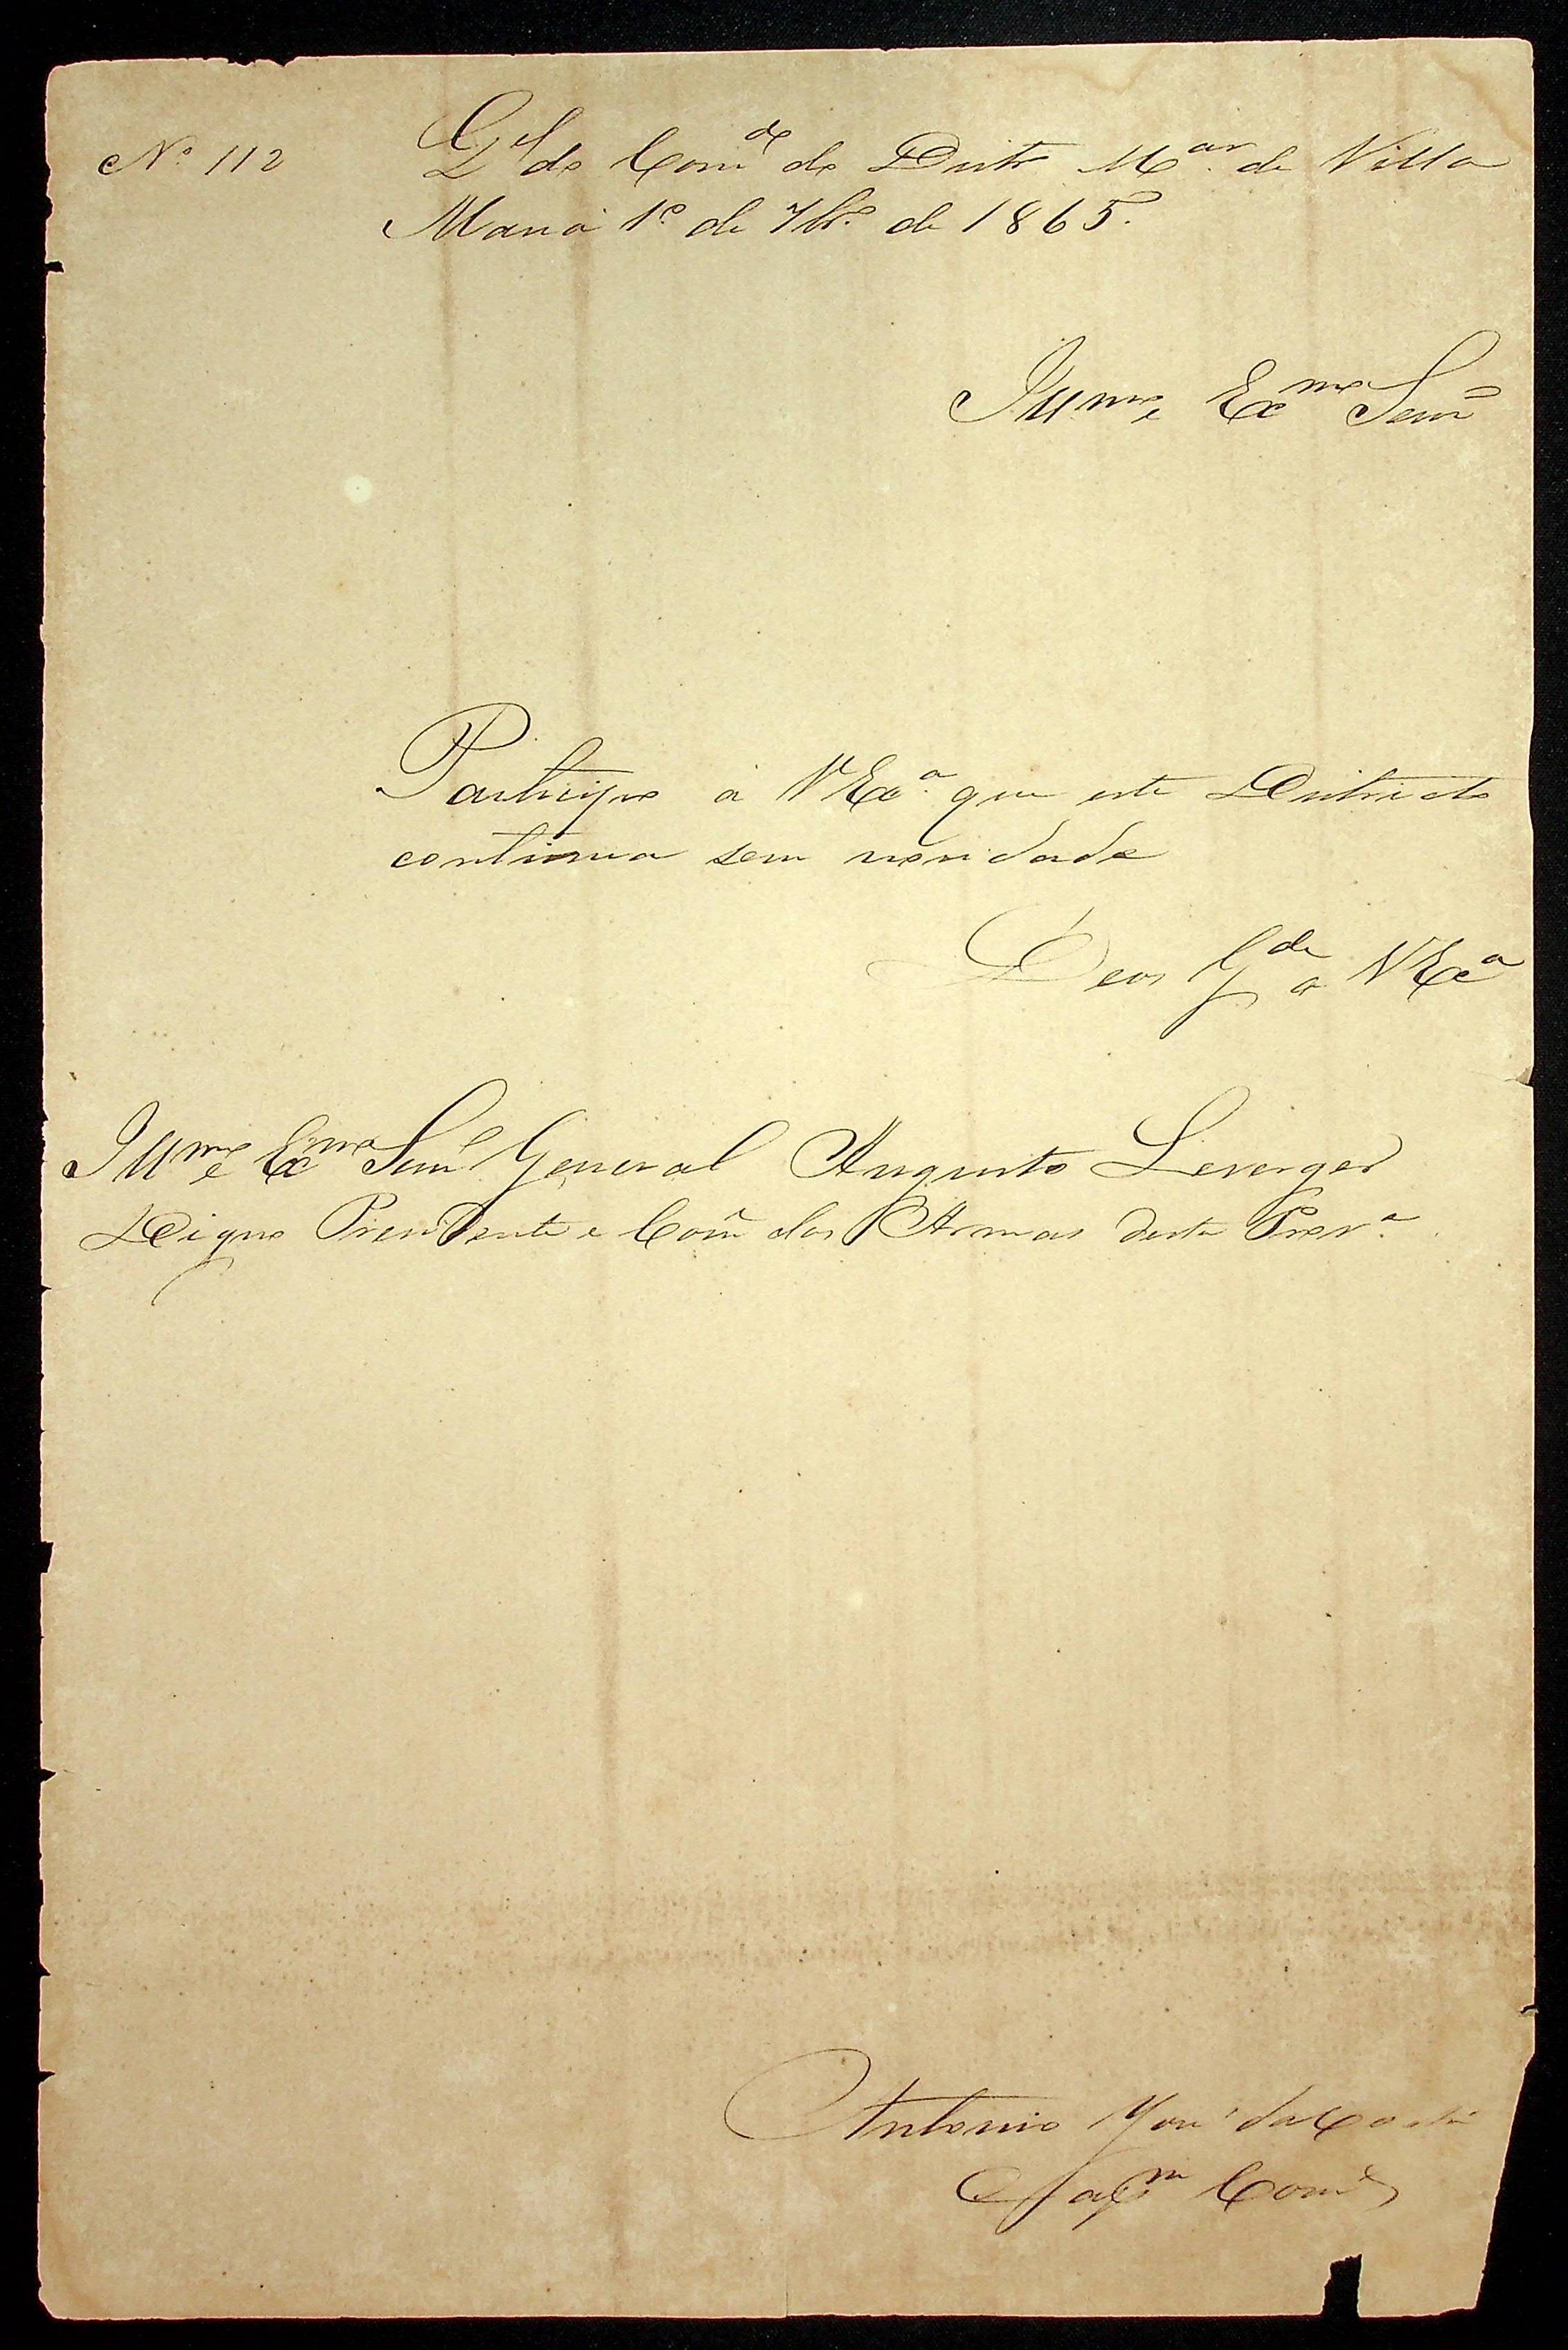 Nº 112
Qel do Comde do Distr Mar. de Villa
Maria 1º de 7brº de 1865.
Illmo e Exmo Senr
Participo á V Exa. que este Districto
continua sem novidade
Deos Gde a V Exa
Illmo e Exmo Senr General Augusto Leverger
Digno Presidente e Com das Armas desta Prova
Antonio José da Costa
Capm Come